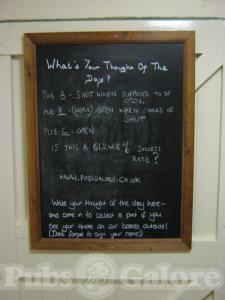 What's Your Thoughts Of The
Day?
PUB A - SHUT WHEN SUPPOSED TO BE
OPEN.
PUB B - (HERE) OPEN WHEN SHOULD BE
SHUT
PUB C - OPEN
IS THIS A 61.2468% SUCCESS
RATE?
WWW.PUBSGALORE.CO.UK
Write your thought of the day here
and come in to collect a pint if you
See your quote on our boards outside!
(Don't forget to sign your name!)
Pubs Galore